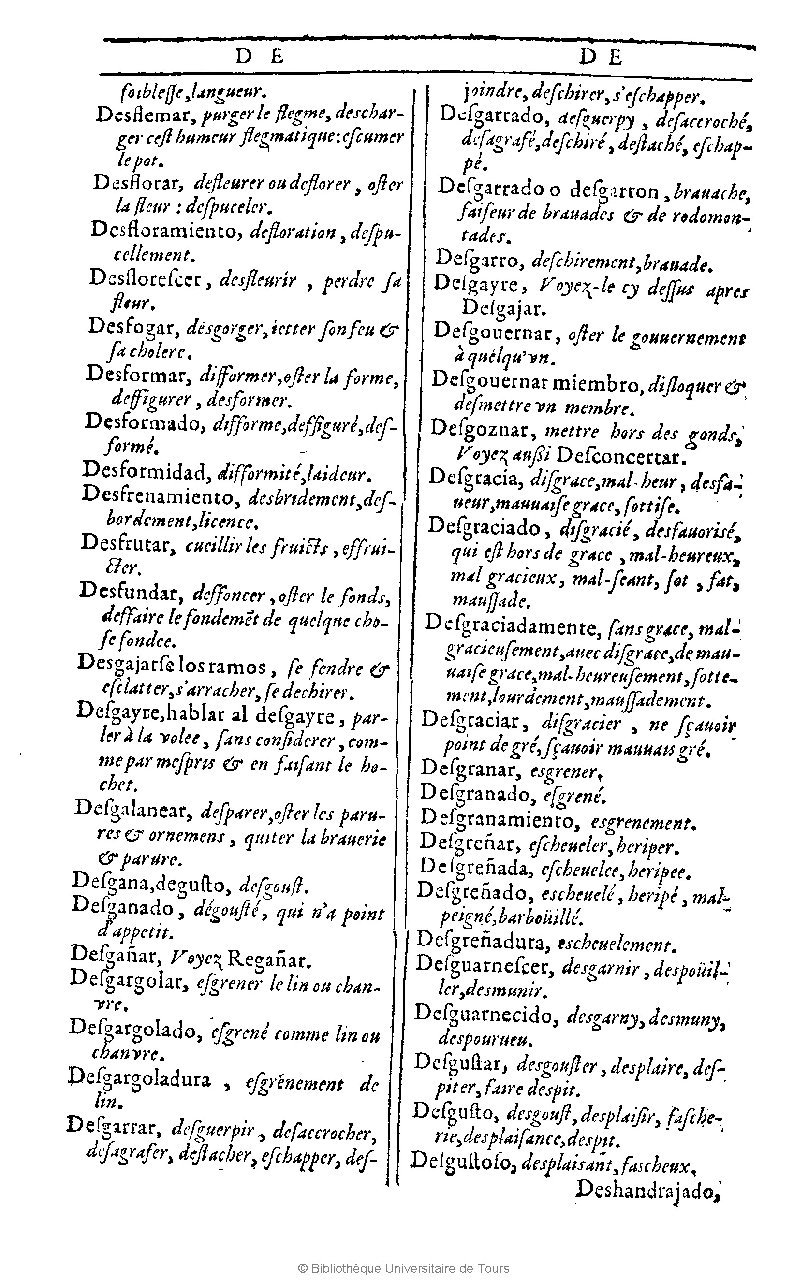 DE
foiblesse, langueur.
Desflemar, purger le flegme, deschar-
ger cest humeur flegmatique: escumer
le pot.
Desflorar, desfleurer ou deflorer, oster
la fleur : despuceler.
Desfloramiento, defloration, despu-
cellement.
Desflorescer, desfleurir, perdre sa
fleur.
Desfogar, desgorger, ietter son feu &
sa cholere.
Desformar, difformer, oster la forme,
deffigurer, desformer.
Desformado, difforme, deffiguré, des-
formé.
Desformidad, difformité, laideur.
Desfrenamiento, desbridement, des-
bordement, licence.
Desfrutar, cueillir les fruicts, effrui-
cter.
Desfundar, deffoncer, oster le fonds,
deffaire le fondemẽt de quelque cho-
se fondee.
Desgajarse los ramos, se fendre &
esclatter, s'arracher, se dechirer.
Desgayre, hablar al desgayre, par-
ler à la volee, sans considerer, com-
me par mespris & en faisant le ho-
chet.
Desgalanear, desparer, oster les paru-
res & ornemens, quiter la brauerie
& parure.
Desgana, degusto, desgoust.
Desganado, dégousté, qui n'a point
d'appetit.
Desgañar, Voyez Regañar.
Desgargolar, esgrener le lin ou chan-
vre.
Desgargolado, esgrené comme lin ou
chanvre.
Desgargoladura, esgrenement de
lin.
Desgarrar, desguerpir, desaccrocher,
desagrafer, destacher, eschapper, des-
DE
joindre, deschirer, s'eschapper.
Desgarrado, desguerpy, desaccroché,
desagrafé, deschiré, destaché, eschap-
pé.
Desgarrado o desgarron, brauache,
faiseur de brauades & de rodomon-
tades.
Desgarro, deschirement, brauade.
Desgayre, Voyez-le cy dessus apres
Desgajar.
Desgouernar, oster le gouuernement
à quelqu'vn.
Desgouernar miembro, disloquer &
desmettre vn membre.
Desgoznar, mettre hors des gonds,
Voyez aussi Desconcertar.
Desgracia, disgrace, mal-heur, desfa-
ueur, mauuaise grace, sottise.
Desgraciado, disgracié, desfauorisé,
qui est hors de grace, mal-heureux,
mal gracieux, mal-seant, sot, fat,
maussade.
Desgraciadamente, sans grace, mal-
gracieusement, auec disgrace, de mau-
uaise grace, mal-heureusement, sotte-
ment, lourdement, maussadement.
Desgraciar, disgracier, ne sçauoir
point de gré, sçauoir mauuais gré.
Desgranar, esgrener.
Desgranado, esgrené.
Desgranamiento, esgrenement.
Desgreñar, escheueler, heriper.
Desgreñada, escheuelee, heripee.
Desgreñado, escheuelé, heripé, mal-
peigné, barboüillé.
Desgreñadura, escheuelement.
Desguarnescer, desgarnir, despoüil-
ler, desmunir.
Desguarnecido, desgarny, desmuny,
despourueu.
Desgustar, desgouster, desplaire, des-
piter, faire despit.
Desgusto, desgoust, desplaisir, fasche-
rie, desplaisance, despit.
Desgustoso, desplaisant, fascheux.
Deshandrajado,
© Bibliothèque Universitaire de Tours